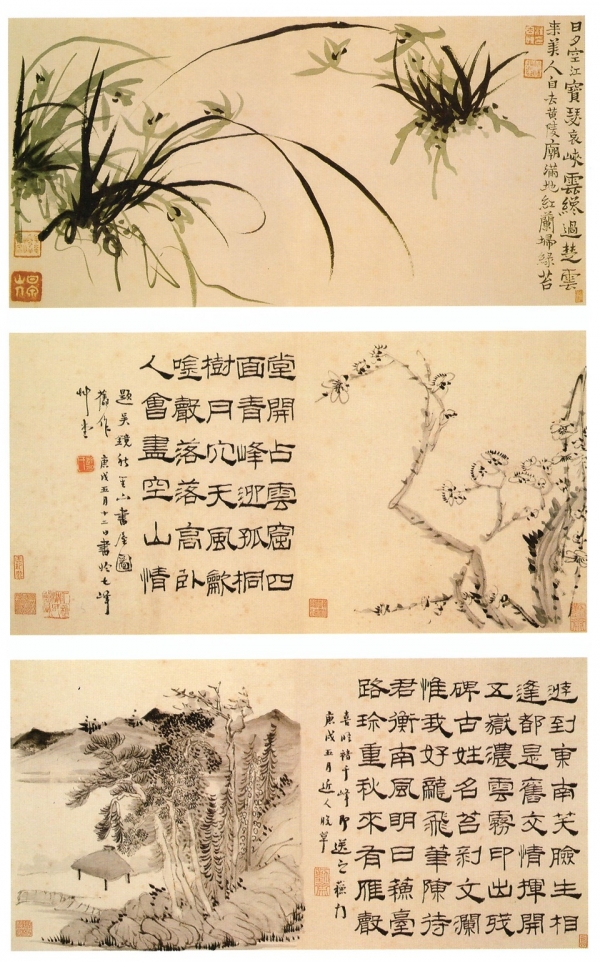 日夕空江寶瑟哀峽雲纔過楚雲
来美人自去黄陵廟滿地紅蘭掃綠苔
堂開占雲窟四
面青峰迎孤桐
樹月穴天風歗
唫聲落落高卧
人會盡空山情
題吴鏡秋山書屋圖
舊作庚戌五月十二日書於七峰
艸堂
逰到東南笑臉生相
逢都是舊交情揮開
五嶽濃雲霧印出残
碑古姓名苔剥文瀾
惟我好龍飛筆陳待
君衡南風明日蘇臺
路珎重秋來有雁聲
喜晤褚千峰即送之蘇州
庚戌五月近人脱草